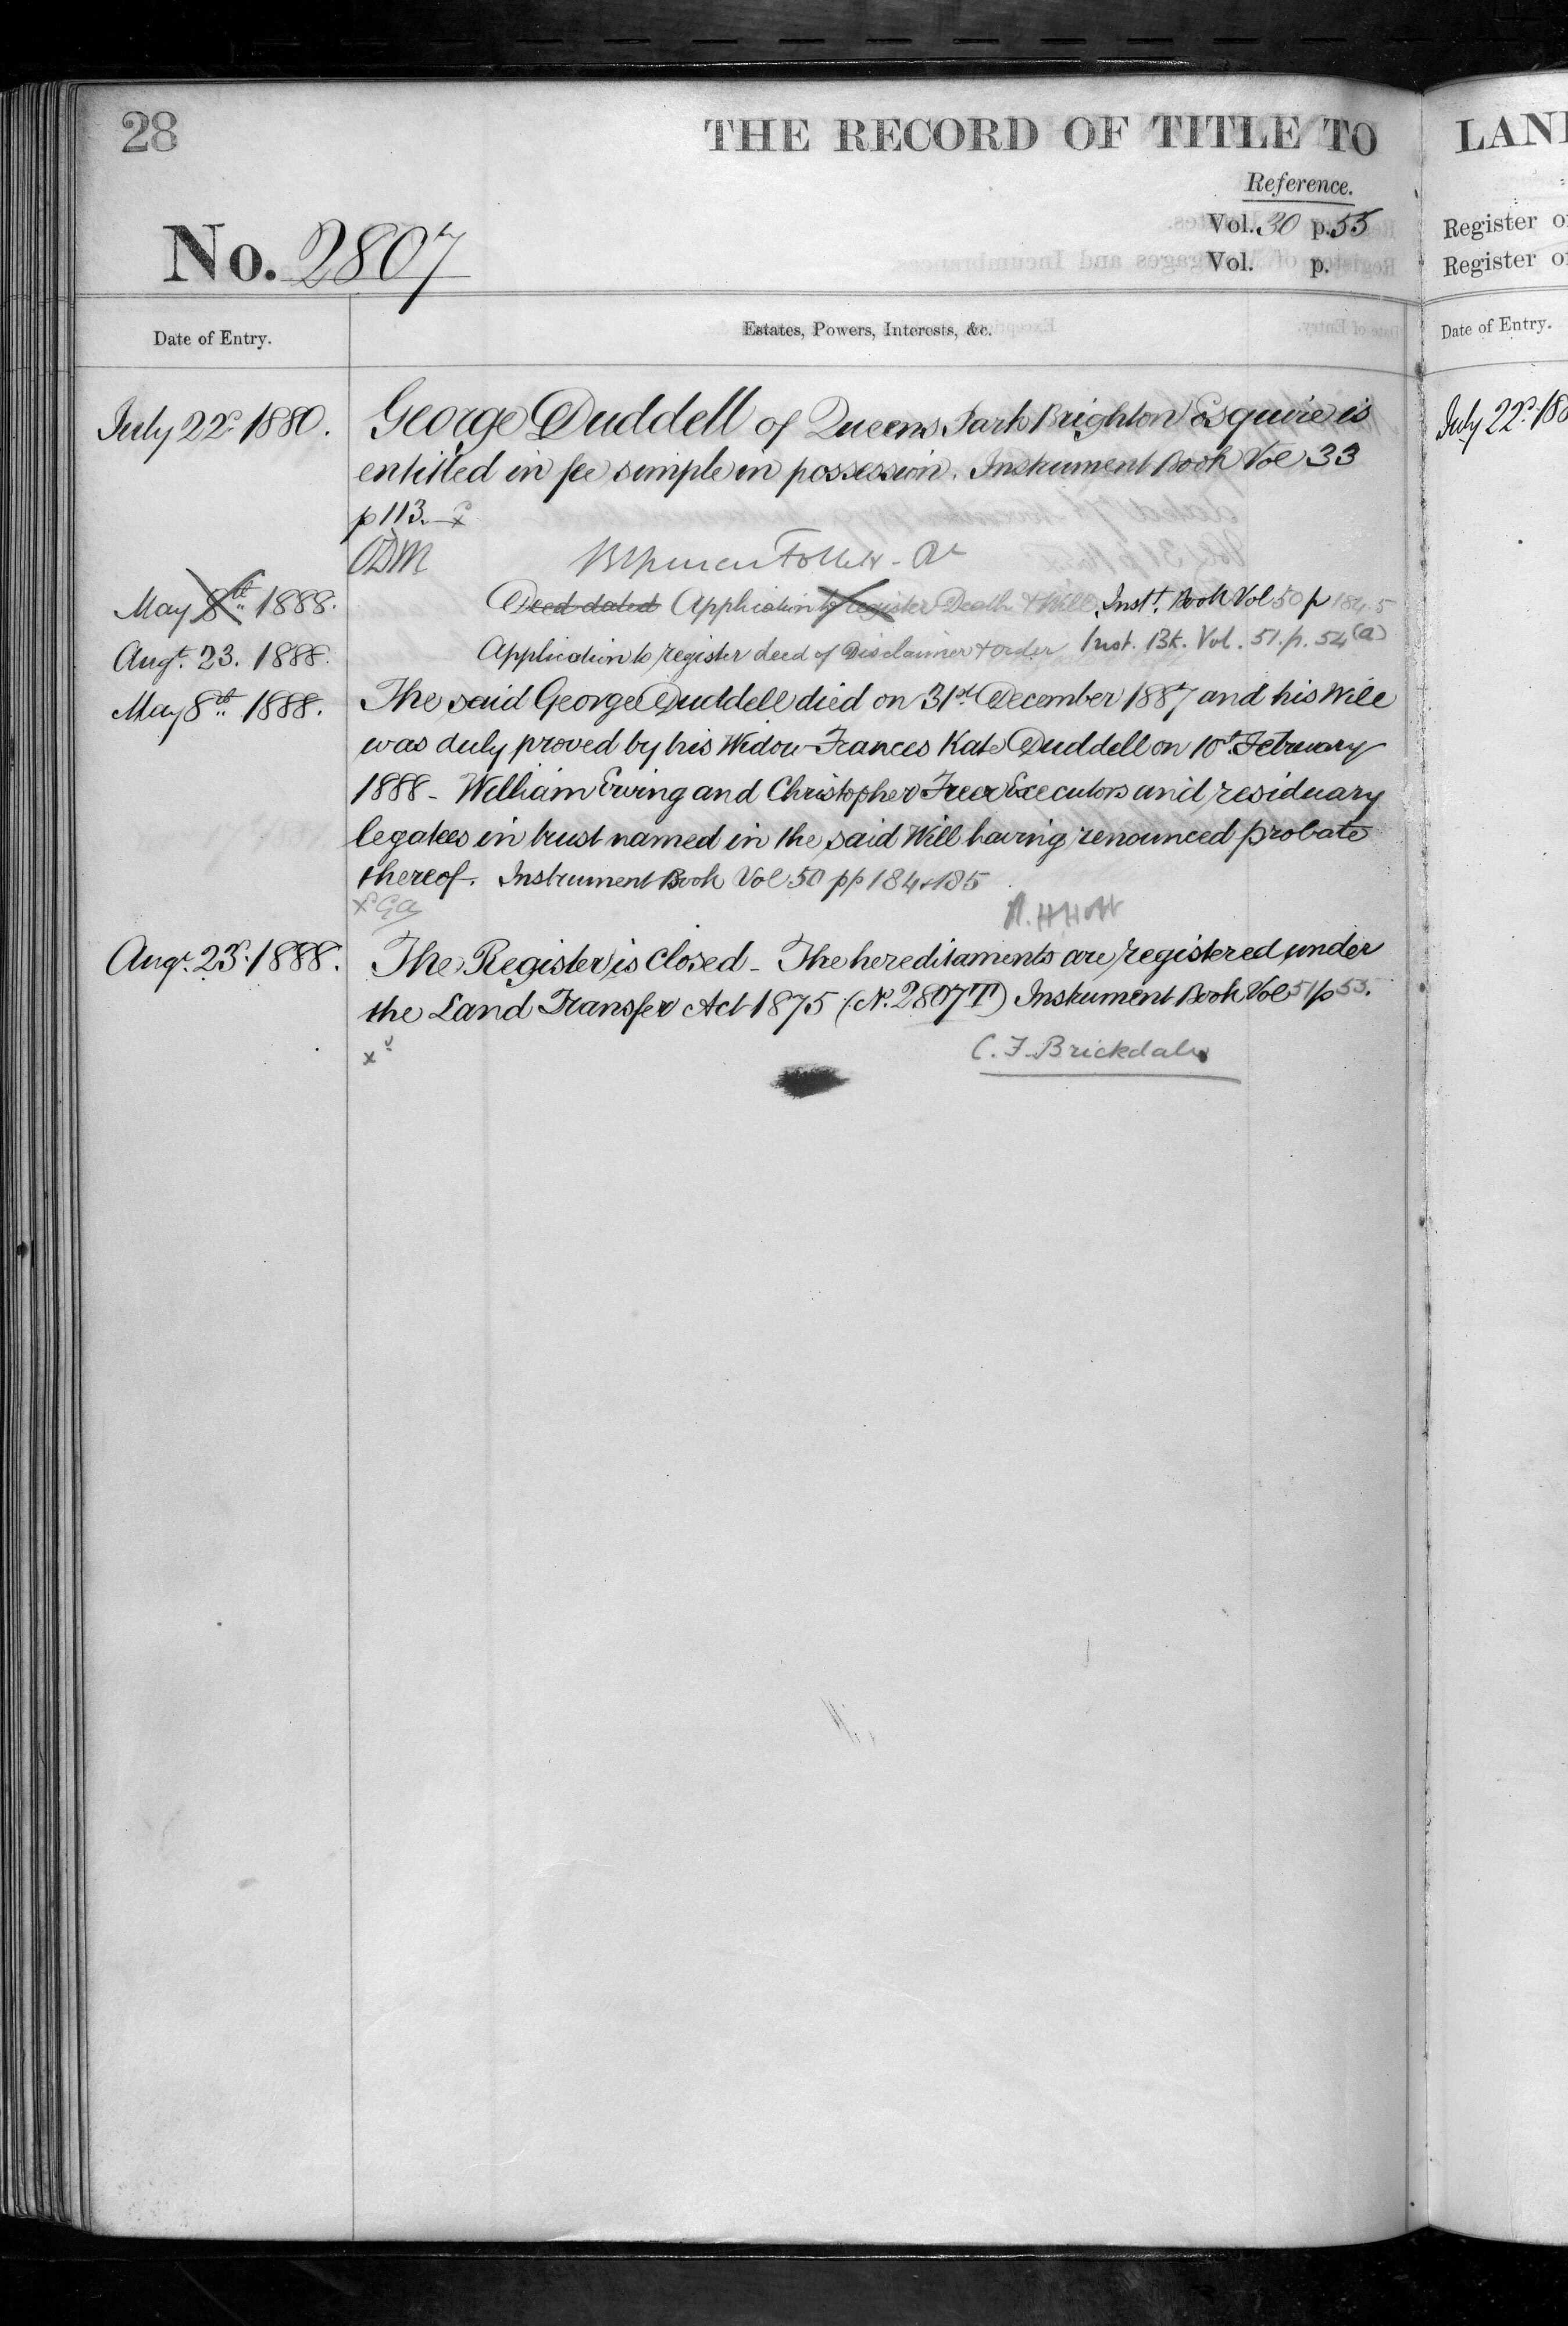 28
THE RECORD OF TITLE TO
Reference.
Vol. 30 p. 55
Vol. p.
No. 2807
Date of Entry.
Estates, Powers, Interests, &c.
July 22d 1880.
George Duddell of Queens Park Brighton Esquire is
entitled in fee simple in possession. Instrument Book Vol 33
p 113.
ODM
May 8th 1888.
Deed dated Application to register Death & Will Instt. Book Vol 50 p 184.5
Augt. 23. 1888.
Application to register deed of Disclaimer & order Inst. Bk. Vol. 51. p. 54(a)
May 8th 1888.
The said George Duddell died on 31st December 1887 and his Will
was duly proved by his Widow Frances Kate Duddell on 10th February
1888 - William Ewing and Christopher Freer Executors and residuary
legatees in trust named in the said Will having renounced probate
thereof. Instrument Book Vol 50 pp 184 & 185
Augt. 23d. 1888.
The Register is closed - The hereditaments are registered under
the Land Transfer Act 1875 (No. 2807T) Instrument Book Vol 51 p 55.
C. F. Brickdale
LAN
Register o
Register o
Date of Entry.
July 22d. 188